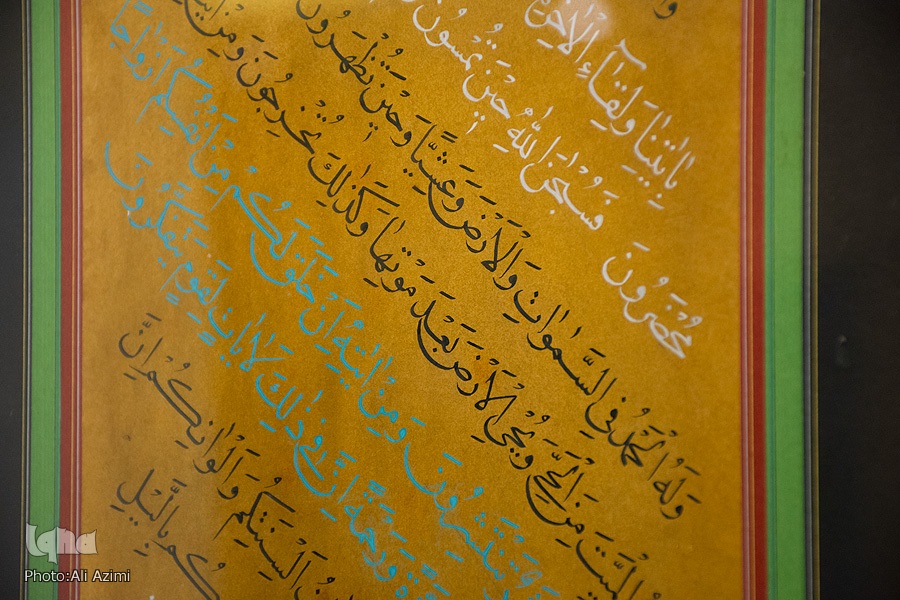 بِاٰيٰتِنَا وَلِقَآءِ الْاٰخِرَ
مُحْضَرُونَ فَسُبْحٰنَ اللّٰهِ حِيْنَ تُمْسُونَ
وَلَهُ الْحَمْدُ فِي السَّمٰوَاتِ وَالْاَرْضِ وَعَشِيًّا وَحِيْنَ تُظْهِرُونَ
الْمَيِّتَ مِنَ الْحَيِّ وَيُحْيِ الْاَرْضَ بَعْدَ مَوْتِهَا وَكَذٰلِكَ تُخْرَجُونَ وَمِنْ
تَنْتَشِرُونَ وَمِنْ اٰيٰتِهٖ اَنْ خَلَقَ لَكُمْ مِنْ اَنْفُسِكُمْ اَزْوَاجًا
وَرَحْمَةً اِنَّ فِي ذٰلِكَ لَاٰيَاتٍ لِقَوْمٍ يَتَفَكَّرُونَ
اَلْسِنَتِكُمْ وَاَلْوَانِكُمْ اِنَّ
كُمْ بِالَّيْلِ
Iqna
Photo:Ali Azimi